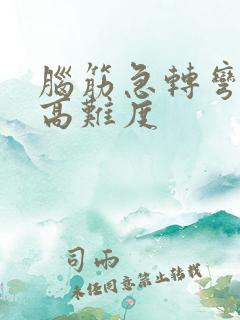 腦筋急轉彎
高難度
司雨
未經同意禁止轉載